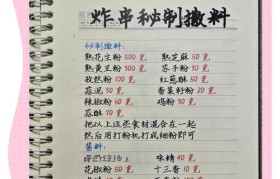 炸串秘制撒料
秘制撒料:
熟花生粉 500克 熟芝麻 50克
熟黄豆粉 300克 苏子粉 50克
孜然粉 100克 红葱酥 50克
蒜泥 50克 香菜籽粉 20克
辣椒粉 60克 鸡粉 30克
蒜酥 70克
把以上这些食材混合在一起
然后用打粉机打成细粉即可
酱料:
味精 40克
十三香 10克